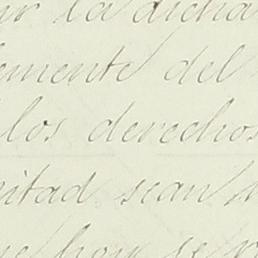 por la dicha
emente del
los derechos
mitad sean
que hoy se